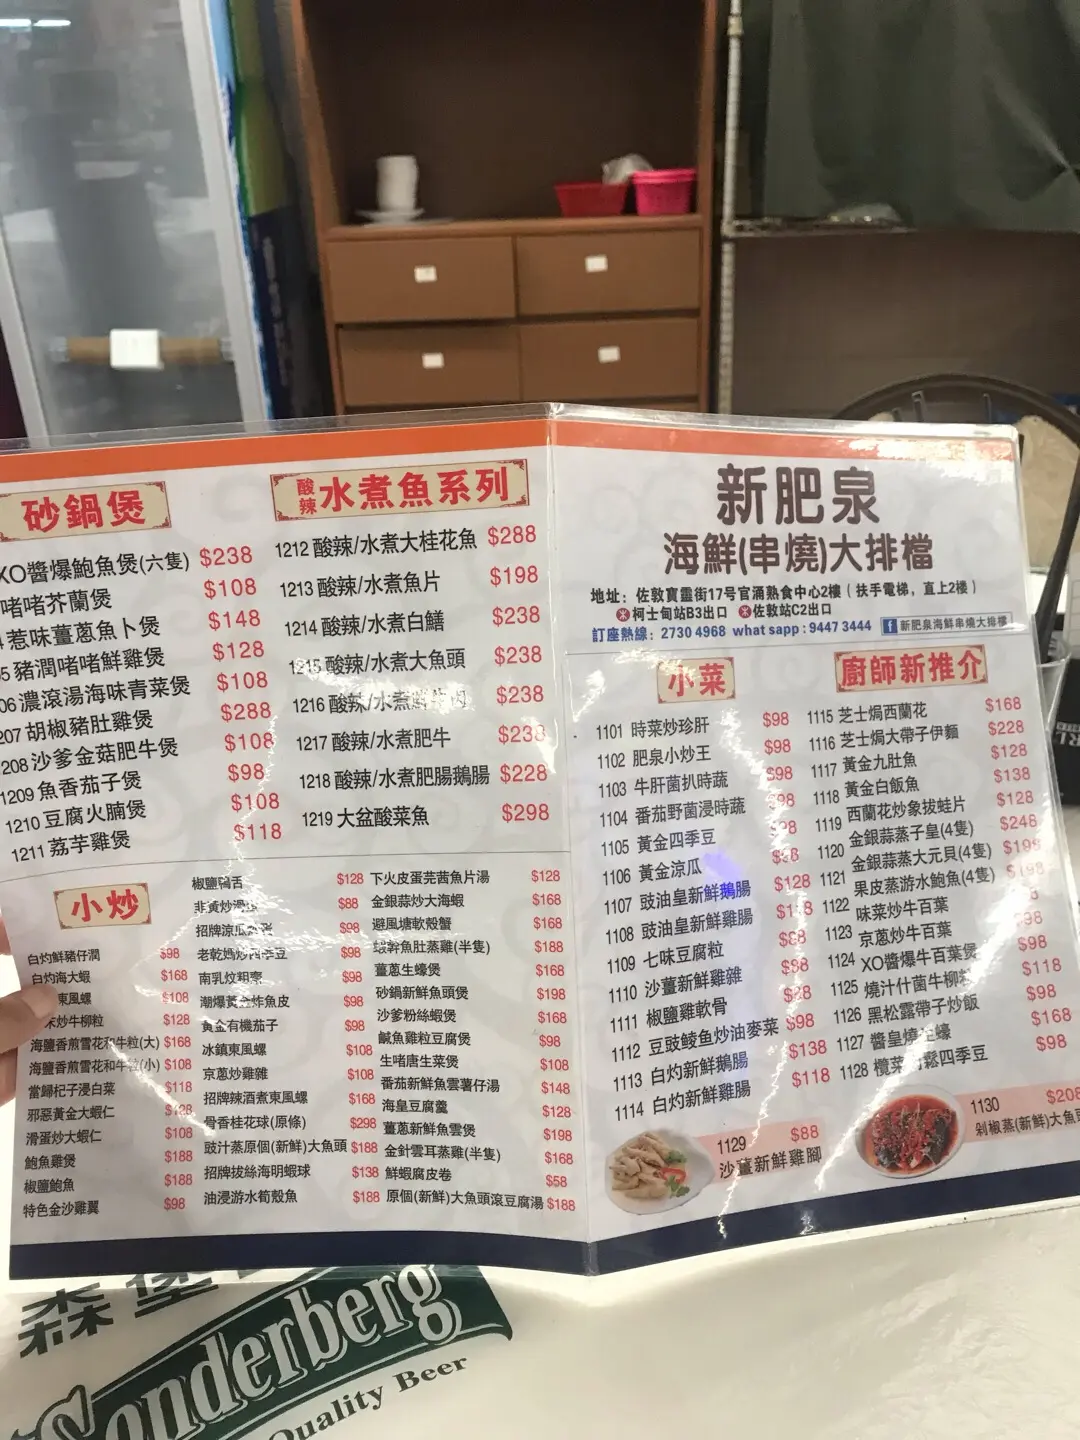 砂鍋煲
XO醬爆鮑魚煲(六隻) $238
啫啫芥蘭煲 $108
惹味薑蔥魚卜煲 $148
豬潤啫啫鮮雞煲 $128
濃滾湯海味青菜煲 $108
胡椒豬肚雞煲 $288
沙爹金菇肥牛煲 $108
1209 魚香茄子煲 $98
1210 豆腐火腩煲 $108
1211 荔芋雞煲 $118
酸辣水煮魚系列
1212 酸辣/水煮大桂花魚 $288
1213 酸辣/水煮魚片 $198
1214 酸辣/水煮白鱔 $238
1215 酸辣/水煮大魚頭 $238
1216 酸辣/水煮 $238
1217 酸辣/水煮肥牛 $238
1218 酸辣/水煮肥腸鵝腸 $228
1219 大盆酸菜魚 $298
小炒
白灼鮮豬仔潤 $98
白灼海大蝦 $168
東風螺 $108
炒牛柳粒 $128
海鹽香煎雪花和牛粒(大) $168
海鹽香煎雪花和牛粒(小) $108
當歸杞子浸白菜 $118
邪惡黃金大蝦仁 $128
滑蛋炒大蝦仁 $108
鮑魚雞煲 $188
椒鹽鮑魚 $188
特色金沙雞翼 $98
椒鹽鴨舌 $128
韭黃炒 $88
招牌涼瓜
老乾媽炒四季豆 $98
南乳炆粗齋 $98
潮爆黃金炸魚皮 $98
黃金有機茄子 $98
冰鎮東風螺 $108
京蔥炒雞雜 $108
招牌辣酒煮東風螺 $168
骨香桂花球(原條) $298
豉汁蒸原個(新鮮)大魚頭 $188
招牌拔絲海明蝦球 $138
油浸游水筍殼魚 $188
下火皮蛋芫茜魚片湯 $128
金銀蒜炒大海蝦 $168
避風塘軟殼蟹 $168
蝦幹魚肚蒸雞(半隻) $188
薑蔥生蠔煲 $168
砂鍋新鮮魚頭煲 $198
沙爹粉絲蝦煲 $168
鹹魚雞粒豆腐煲 $98
生啫唐生菜煲 $108
番茄新鮮魚雲薯仔湯 $148
海皇豆腐羹 $128
薑蔥新鮮魚雲煲 $198
金針雲耳蒸雞(半隻) $168
鮮蝦腐皮卷 $58
原個(新鮮)大魚頭滾豆腐湯 $188
新肥泉
海鮮(串燒)大排檔
地址：佐敦寶靈街17号官涌熟食中心2樓（扶手電梯，直上2樓）
柯士甸站B3出口 佐敦站C2出口
訂座熱線：2730 4968 what sapp : 9447 3444 f 新肥泉海鮮串燒大排檔
小菜
1101 時菜炒珍肝 $98
1102 肥泉小炒王 $98
1103 牛肝菌扒時蔬 $98
1104 番茄野菌浸時蔬
1105 黃金四季豆
1106 黃金涼瓜
1107 豉油皇新鮮鵝腸 $128
1108 豉油皇新鮮雞腸
1109 七味豆腐粒 $88
1110 沙薑新鮮雞雜 $88
1111 椒鹽雞軟骨
1112 豆豉鯪魚炒油麥菜 $98
1113 白灼新鮮鵝腸 $138
1114 白灼新鮮雞腸 $118
廚師新推介
1115 芝士焗西蘭花 $168
1116 芝士焗大帶子伊麵 $228
1117 黃金九肚魚 $128
1118 黃金白飯魚 $138
1119 西蘭花炒象拔蚌片 $128
1120 金銀蒜蒸子皇(4隻) $248
1121 金銀蒜蒸大元貝(4隻)
1122 果皮蒸游水鮑魚(4隻)
1123 味菜炒牛百葉
1124 京蔥炒牛百葉
1125 XO醬爆牛百葉煲 $98
1126 燒汁什菌牛柳粒 $118
1127 黑松露帶子炒飯 $98
醬皇燒生蠔 $168
1128 欖菜鬆四季豆 $98
1129 $88
沙薑新鮮雞腳
1130 $208
剁椒蒸(新鮮)大魚頭
Sonderberg
Quality Beer